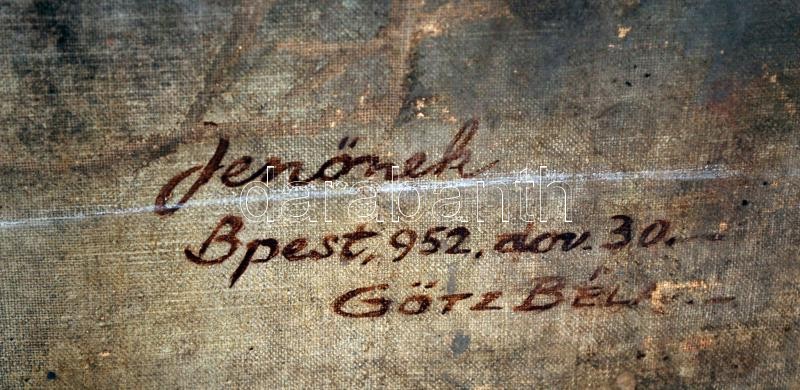 Jenőnek
darabanth
Bpest, 952. nov. 30.
GÖTZ BÉLA